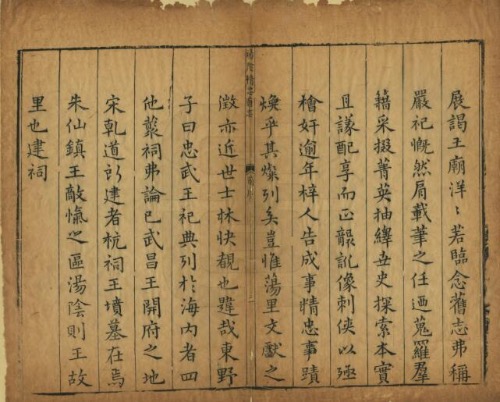 展謁王廟洋〻若臨念舊志弗稱
嚴祀慨然肩載筆之任迺蒐羅羣
籍采掇菁英抽繹史探索本實
且配享而正訛像刺俠以殛
檜奸逾年梓人告成事精忠事蹟
煥乎其燦列矣豈惟蕩里文獻之
徵亦近世士林快覩也哉東野
子曰忠武王祀典列於海內者四
他叢祠弗論已武昌王開府之地
宋乹道所建者杭祠王墳墓在焉
朱仙鎮王敵愾之區湯陰則王故
里也建祠